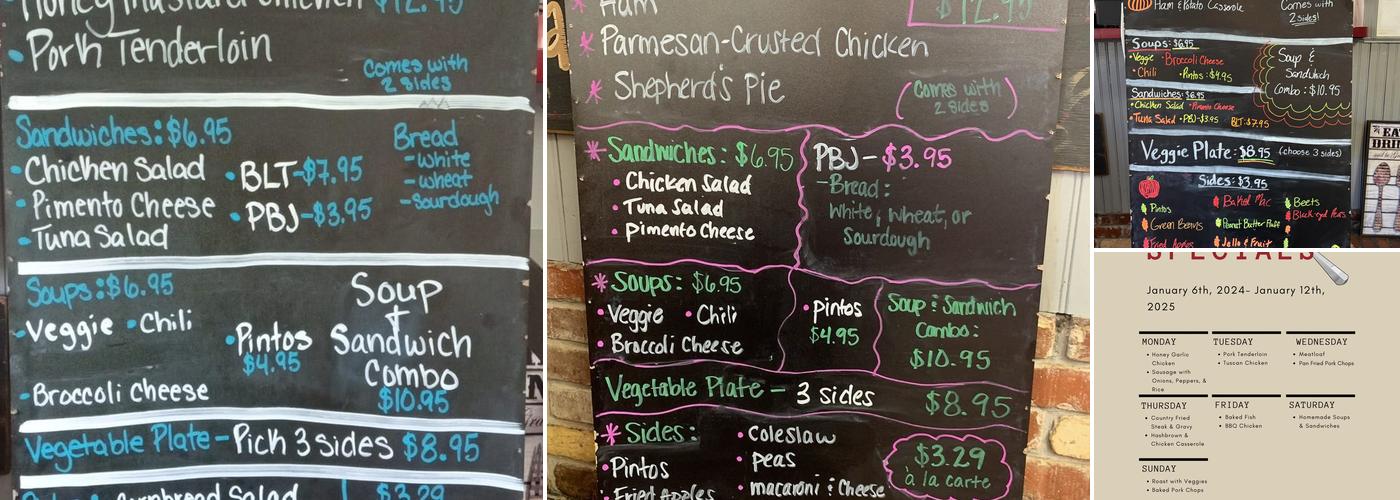 Honey Mustard Chicken $12.95
• Pork Tenderloin
Comes with
2 sides
Sandwiches: $6.95
• Chicken Salad
• Pimento Cheese
• Tuna Salad
• BLT-$7.95
• PBJ-$3.95
Bread
-white
-wheat
-sourdough
Soups: $6.95
• Veggie • Chili
• Broccoli Cheese
• Pintos
$4.95
Soup
+
Sandwich
Combo
$10.95
Vegetable Plate - Pick 3 sides $8.95
Cornbread Salad
$3.29
* Ham
$12.95
* Parmesan-Crusted Chicken
* Shepherd's Pie
(Comes with
2 sides)
* Sandwiches: $6.95
• Chicken Salad
• Tuna Salad
• Pimento Cheese
PBJ - $3.95
-Bread:
White, Wheat, or
Sourdough
* Soups: $6.95
• Veggie • Chili
• Broccoli Cheese
• Pintos
$4.95
Soup & Sandwich
Combo:
$10.95
Vegetable Plate - 3 sides $8.95
* Sides:
• Pintos
Fried Apples
• Coleslaw
• peas
• macaroni & Cheese
$3.29
à la carte
Ham & Potato Casserole
Comes with
2 sides!
Soups: $6.95
• Veggie • Broccoli Cheese
• Chili • Pintos: $4.95
Soup &
Sandwich
Combo: $10.95
Sandwiches: $6.95
• Chicken Salad • Pimento Cheese
• Tuna Salad • PBJ-$3.95 BLT: $7.95
Veggie Plate: $8.95 (choose 3 sides)
Sides: $3.95
Pintos
Green Beans
Fried Apples
Baked Mac
Peanut Butter Fluff
Jello & Fruit
Beets
Black-eyed Peas
SPECIALS
January 6th, 2024- January 12th,
2025
MONDAY
• Honey Garlic
Chicken
• Sausage with
Onions, Peppers, &
Rice
TUESDAY
• Pork Tenderloin
• Tuscan Chicken
WEDNESDAY
• Meatloaf
• Pan Fried Pork Chops
THURSDAY
• Country Fried
Steak & Gravy
• Hashbrown &
Chicken Casserole
FRIDAY
• Baked Fish
• BBQ Chicken
SATURDAY
• Homemade Soups
& Sandwiches
SUNDAY
• Roast with Veggies
• Baked Pork Chops